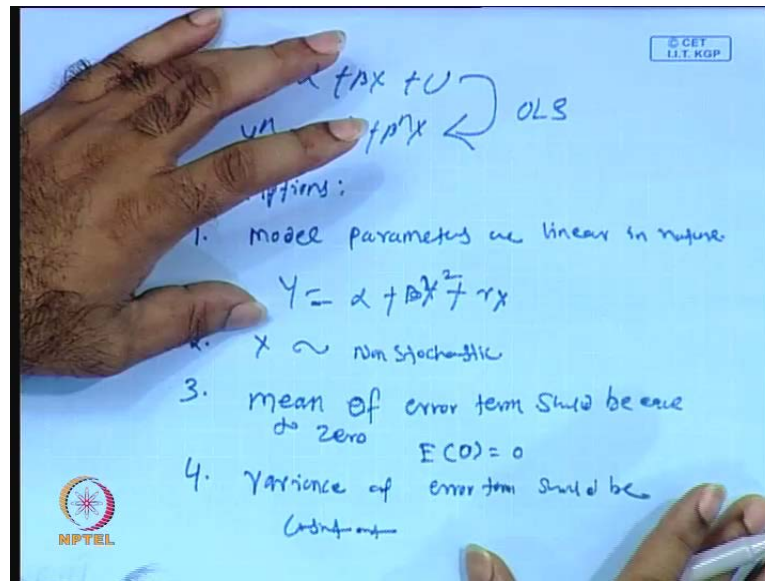 © CET
I.I.T. KGP
α + βX + U
+ β^X
OLS
ptions:
1. Model parameters are linear in nature.
Y = α + βX² + γX
2. X ~ Non Stochastic
3. mean of error term should be
to zero
E(U) = 0
4. Variance of error term should be
NPTEL